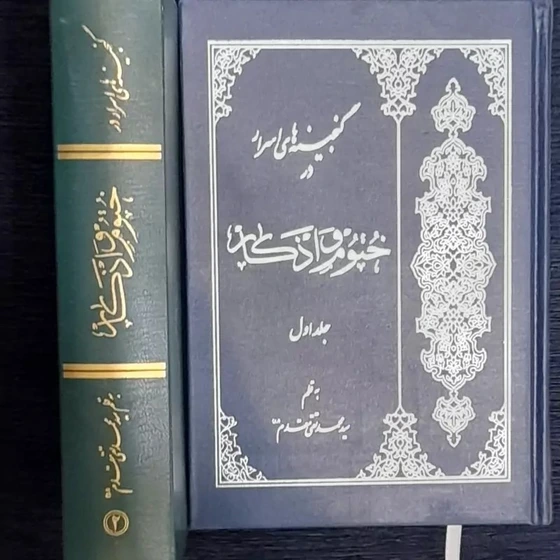 گنجینه‌های اسرار در
ختوم و اذکار
بقلم سید محمد تقی مقدم
گنجینه‌های اسرار
در
ختوم و اذکار
جلد اول
بقلم
سید محمد تقی مقدم